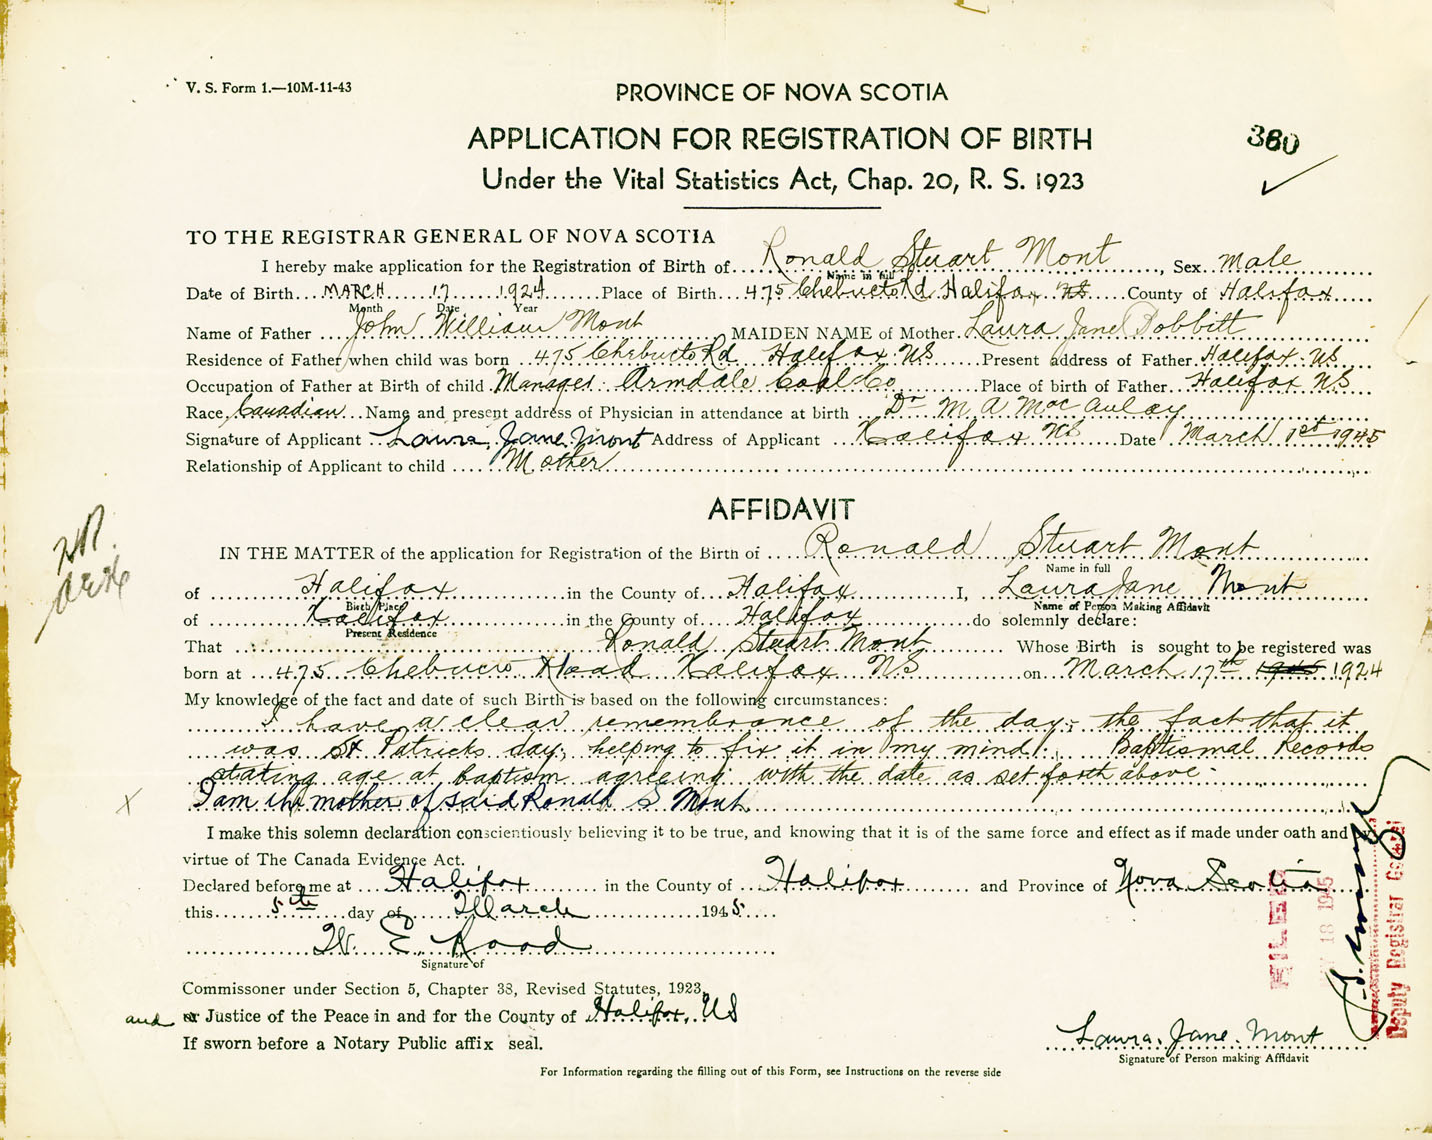 V. S. Form 1.—10M-11-43
PROVINCE OF NOVA SCOTIA
APPLICATION FOR REGISTRATION OF BIRTH
360
Under the Vital Statistics Act, Chap. 20, R. S. 1923
TO THE REGISTRAR GENERAL OF NOVA SCOTIA
I hereby make application for the Registration of Birth of Ronald Stuart Mont, Sex male
Name in full
Date of Birth MARCH 17 1924 Place of Birth 475 Chebucto Rd Halifax NS County of Halifax
Month Date Year
Name of Father John William Mont MAIDEN NAME of Mother Laura Jane Dobbitt
Residence of Father when child was born 475 Chebucto Rd Halifax NS Present address of Father Halifax NS
Occupation of Father at Birth of child Manager Armdale Coal Co Place of birth of Father Halifax NS
Race Canadian Name and present address of Physician in attendance at birth Dr M A MacAulay
Signature of Applicant Laura Jane Mont Address of Applicant Halifax NS Date March 1st 1945
Relationship of Applicant to child Mother
AFFIDAVIT
IN THE MATTER of the application for Registration of the Birth of Ronald Stuart Mont
Name in full
of Halifax in the County of Halifax I, Laura Jane Mont
Birth Place Name of Person Making Affidavit
of Halifax in the County of Halifax do solemnly declare:
Present Residence
That Ronald Stuart Mont Whose Birth is sought to be registered was
born at 475 Chebucto Road Halifax NS on March 17th 1945 1924
My knowledge of the fact and date of such Birth is based on the following circumstances:
I have a clear remembrance of the day; the fact that it
was St Patricks day, helping to fix it in my mind. Baptismal Records
stating age at baptism agreeing with the date as set forth above.
X I am the mother of said Ronald S Mont
I make this solemn declaration conscientiously believing it to be true, and knowing that it is of the same force and effect as if made under oath and by
virtue of The Canada Evidence Act.
Declared before me at Halifax in the County of Halifax and Province of Nova Scotia
this 5th day of March 1945
W. E. Rood
Signature of
Commissoner under Section 5, Chapter 38, Revised Statutes, 1923,
and or Justice of the Peace in and for the County of Halifax, NS
If sworn before a Notary Public affix seal.
Laura Jane Mont
Signature of Person making Affidavit
For Information regarding the filling out of this Form, see Instructions on the reverse side
FILED
18 1945
Deputy Registrar General